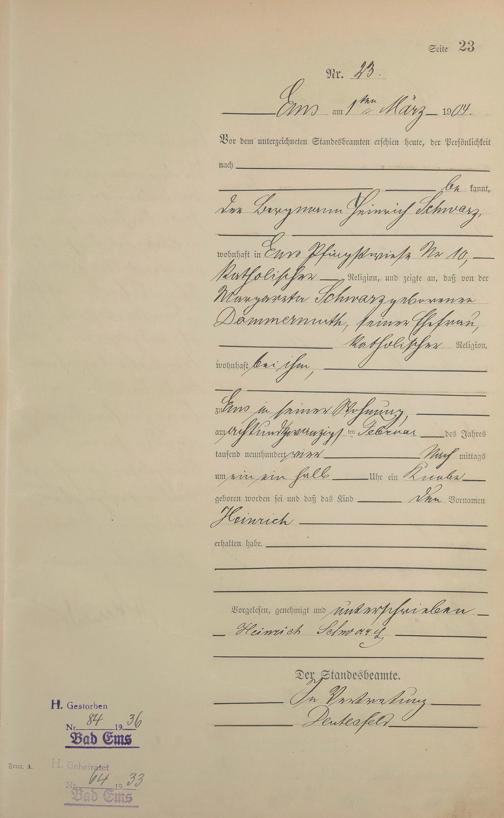 Seite 23
Nr. 23.
Ems am 1ten März 1904.
Vor dem unterzeichneten Standesbeamten erschien heute, der Persönlichkeit
nach
be kannt,
der Bergmann Heinrich Schwarz,
wohnhaft in Ems Pfingstwiese Nr 10,
katholischer Religion, und zeigte an, daß von der
Margareta Schwarz geborenen
Dommermuth, seiner Ehefrau,
katholischer Religion,
wohnhaft bei ihm,
zu Ems in seiner Wohnung,
am achtundzwanzigsten Februar des Jahres
tausend neunhundert vier Nach mittags
um ein ein halb Uhr ein Knabe
geboren worden sei und daß das Kind den Vornamen
Heinrich
erhalten habe.
Vorgelesen, genehmigt und unterschrieben
Heinrich Schwarz
Der Standesbeamte.
In Vertretung
H. Gestorben
Nr. 84 1936
Bad Ems
H. Geheiratet
Nr. 64 1933
Bad Ems
Form. A.